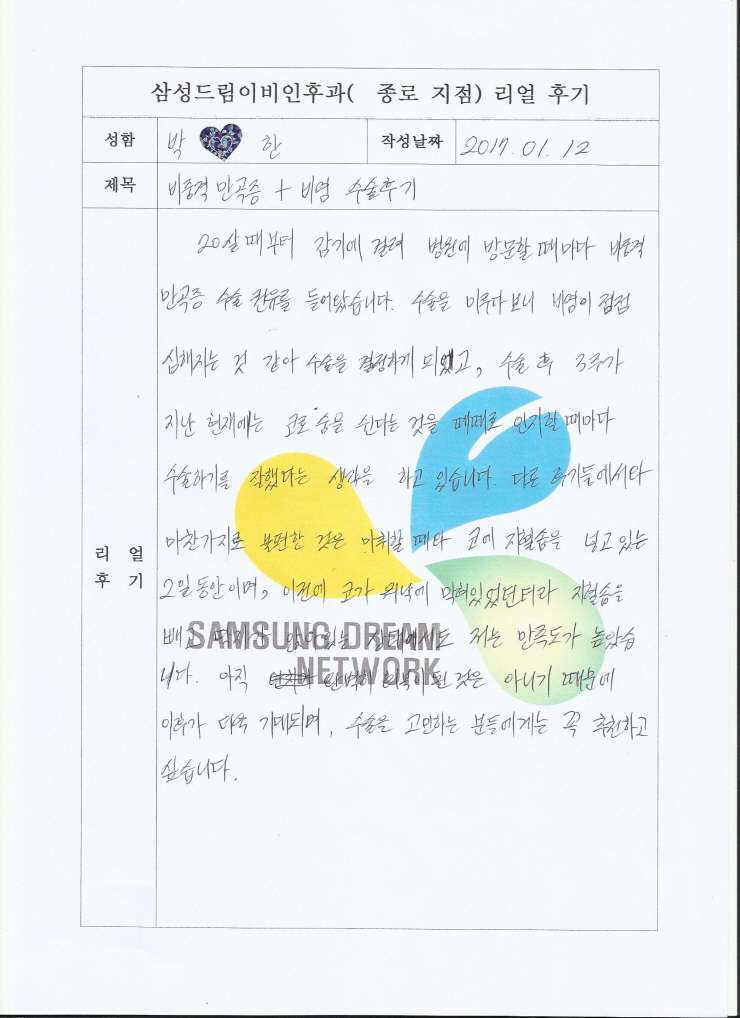 삼성드림이비인후과( 종로 지점) 리얼 후기
성함 박 한 작성날짜 2017. 01. 12
제목 비중격 만곡증 + 비염 수술후기
리 얼
후 기
20살 때부터 감기에 걸려 병원에 방문할 때마다 비중격
만곡증 수술 권유를 들어왔습니다. 수술을 미루다보니 비염이 점점
심해지는 것 같아 수술을 결정하게 되었고, 수술 후 3주가
지난 현재에는 코로 숨을 쉰다는 것을 때때로 인지할 때마다
수술하기를 잘했다는 생각을 하고 있습니다. 다른 후기들에서와
마찬가지로 불편한 것은 마취할 때와 코에 지혈솜을 넣고 있는
2일 동안이며, 이전에 코가 워낙에 막혀있었던터라 지혈솜을
빼고 있는 상태에서도 저는 만족도가 높았습
니다. 아직 완벽히 회복이 된 것은 아니기 때문에
이후가 더욱 기대되며, 수술을 고민하는 분들에게는 꼭 추천하고
싶습니다.
SAMSUNG DREAM
NETWORK